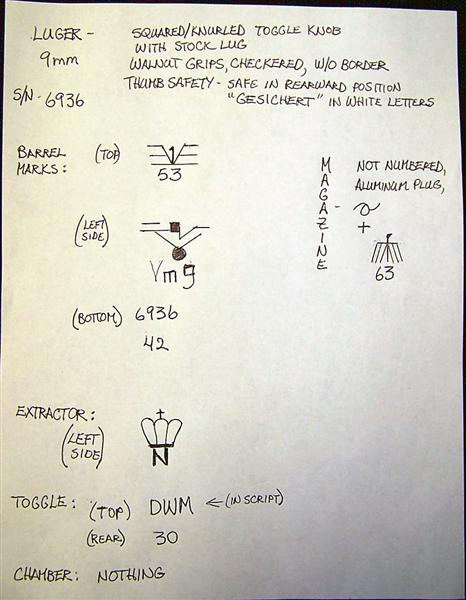 LUGER - SQUARED/KNURLED TOGGLE KNOB
WITH STOCK LUG
9mm WALNUT GRIPS, CHECKERED, W/O BORDER
THUMB SAFETY - SAFE IN REARWARD POSITION
S/N - 6936 "GESICHERT" IN WHITE LETTERS
BARREL MARKS: (TOP) 1
53
(LEFT SIDE)
Vmg
(BOTTOM) 6936
42
MAGAZINE - NOT NUMBERED,
ALUMINUM PLUG,
+
63
EXTRACTOR:
(LEFT SIDE) N
TOGGLE: (TOP) DWM ← (IN SCRIPT)
(REAR) 30
CHAMBER: NOTHING